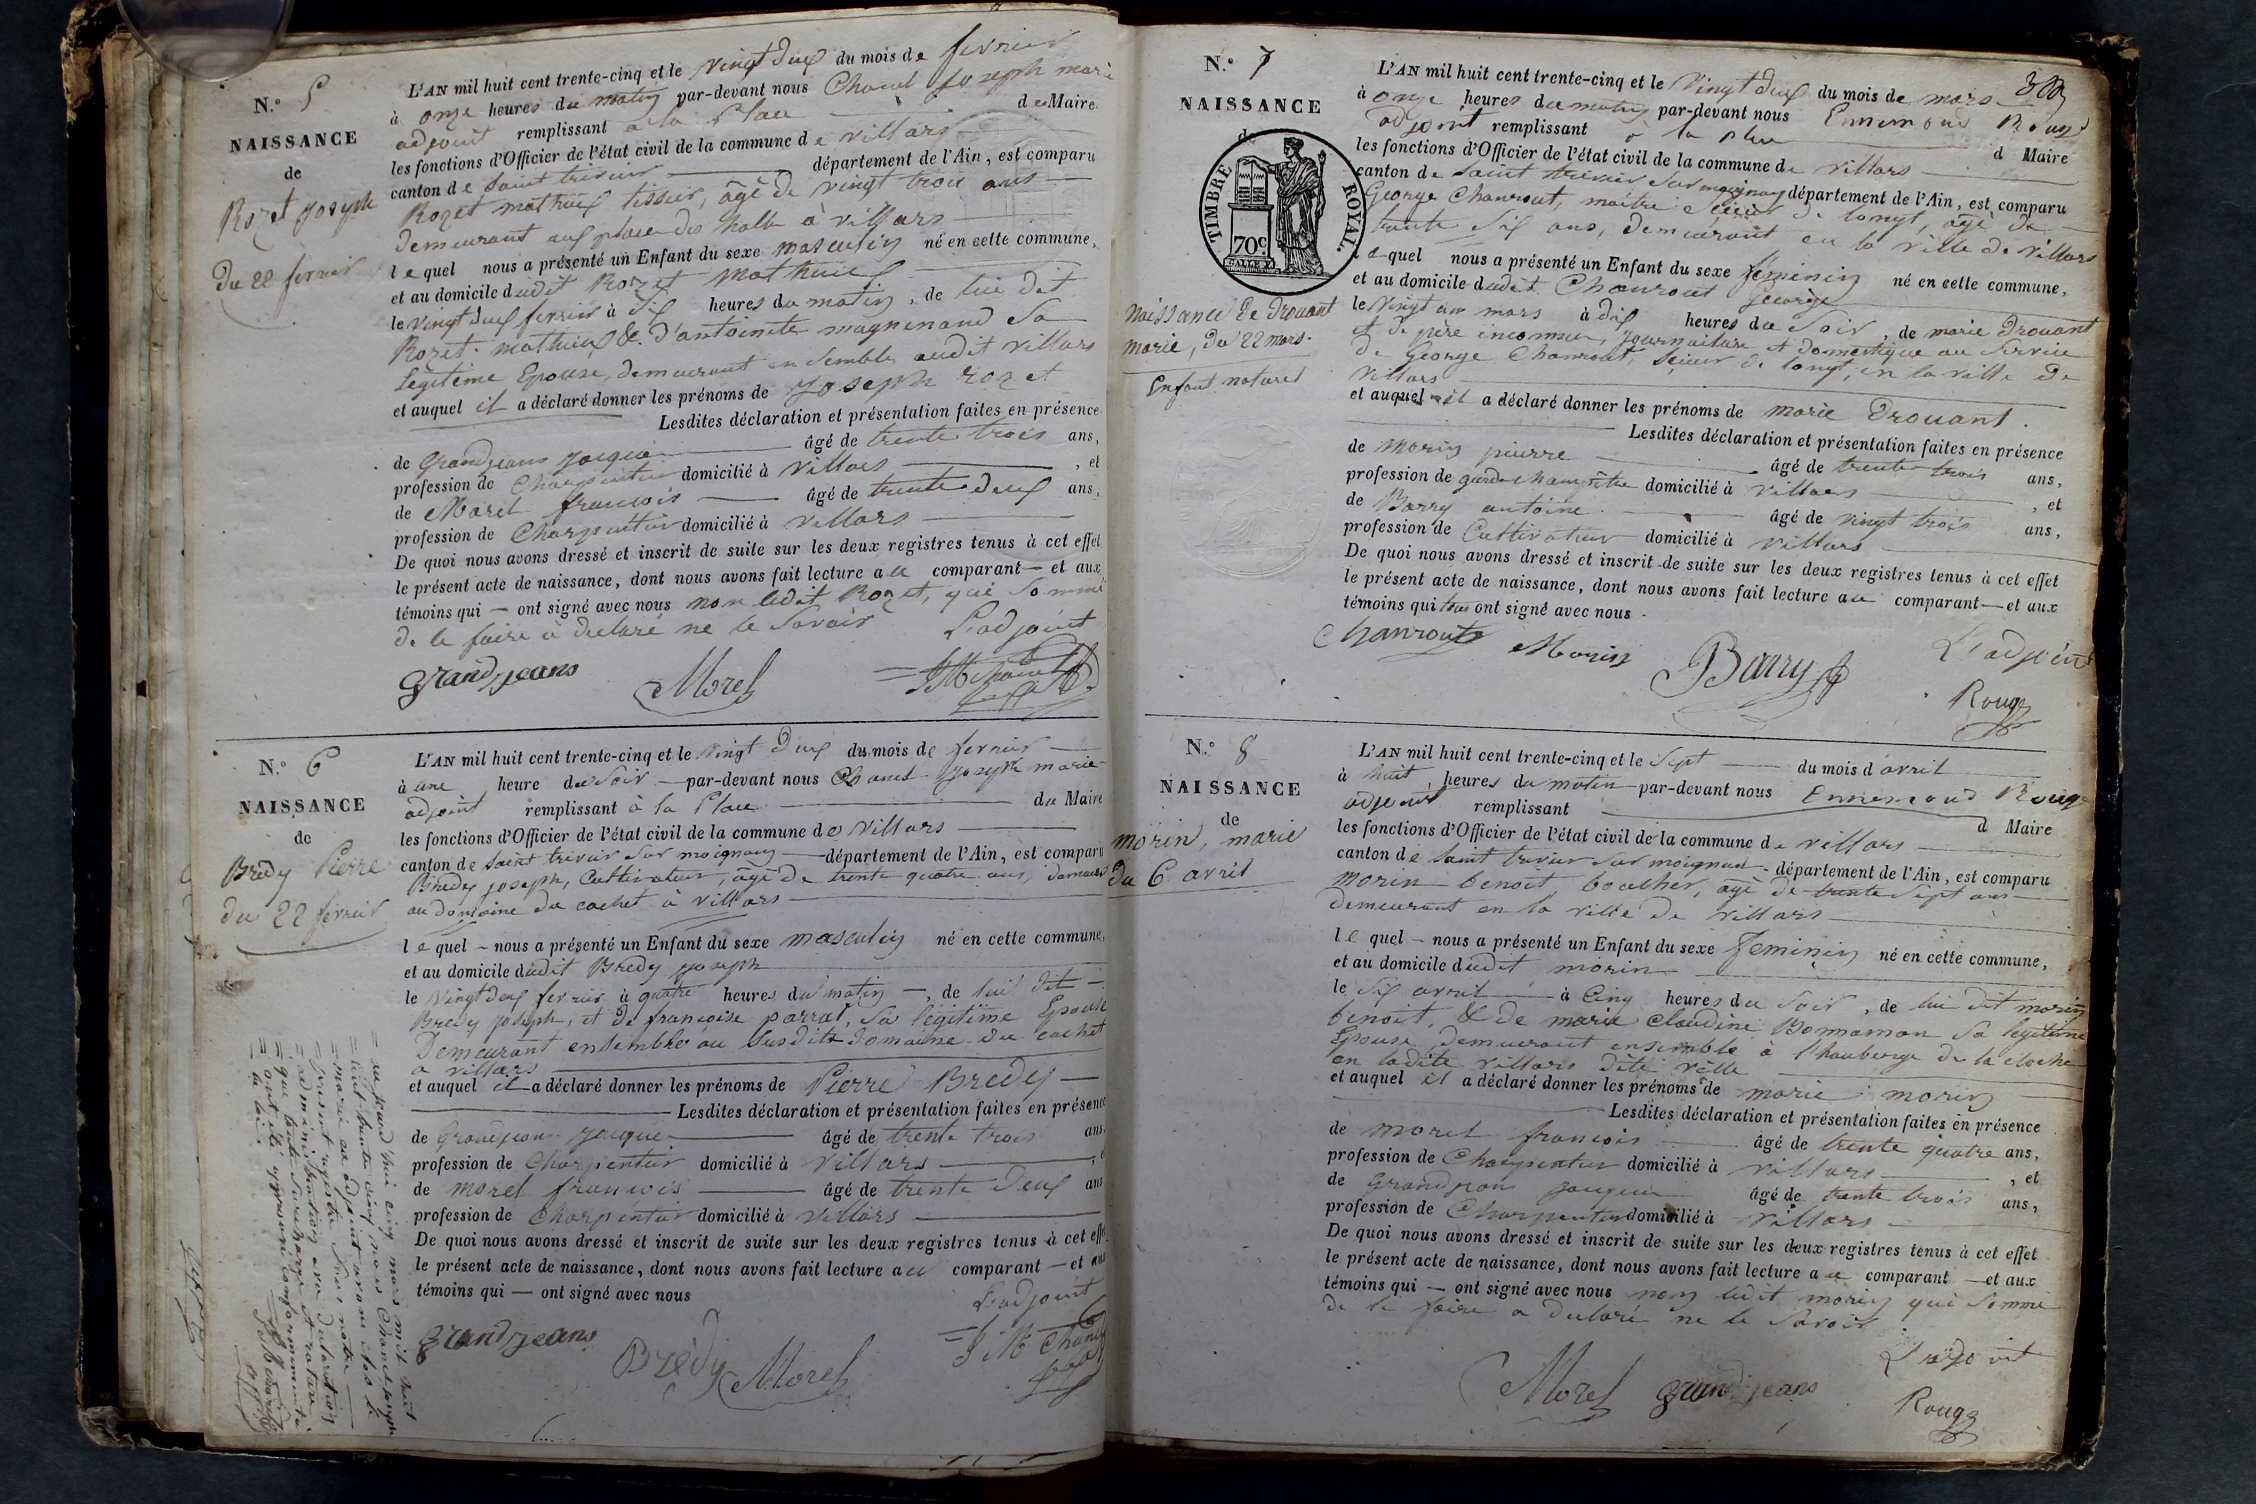 N.º 5
NAISSANCE
de
Rozet Joseph
Du 22 fevrier
L'AN mil huit cent trente-cinq et le vingt deux du mois de fevrier
à onze heures du matin par-devant nous Chanel Joseph marie
adjoint remplissant à la Place du Maire
les fonctions d'Officier de l'état civil de la commune de villars
canton de saint trivier département de l'Ain, est comparu
Rozet mathieu tissier, âgé de vingt trois ans
demeurant aux place des halle à villars
lequel nous a présenté un Enfant du sexe masculin né en cette commune,
et au domicile dudit Rozet mathieu
le vingt deux fevrier à six heures du matin, de lui dit
Rozet mathieu & d'antoinete magninand sa
légitime Epouse, demeurant ensemble audit villars
et auquel il a déclaré donner les prénoms de joseph rozet
Lesdites déclaration et présentation faites en présence
de Grandjeans jacque âgé de trente trois ans,
profession de Charpentier domicilié à villars, et
de Morel francois âgé de trente deux ans,
profession de Charpentier domicilié à villars
De quoi nous avons dressé et inscrit de suite sur les deux registres tenus à cet effet
le présent acte de naissance, dont nous avons fait lecture au comparant — et aux
témoins qui — ont signé avec nous non ledit Rozet, qui sommé
de le faire à declaré ne le savoir L'adjoint
grandjeans Morel J M Chanel
N.º 6
NAISSANCE
de
Bredy Pierre
du 22 fevrier
L'AN mil huit cent trente-cinq et le vingt deux du mois de fevrier
à une heure du soir par-devant nous Chanel Joseph marie
adjoint remplissant à la Place du Maire
les fonctions d'Officier de l'état civil de la commune de villars
canton de saint trivier sur moignans département de l'Ain, est comparu
Bredy joseph, Cultivateur, âgé de trente quatre ans, demeurant
au domaine du cachet à villars
lequel – nous a présenté un Enfant du sexe masculin né en cette commune,
et au domicile dudit Bredy joseph
le vingt deux fevrier à quatre heures du matin —, de lui dit —
Bredy joseph, et de francoise parrat, sa légitime Epouse
Demeurant ensemble au susdit domaine du cachet
a villars
et auquel il a déclaré donner les prénoms de Pierre Bredy
Lesdites déclaration et présentation faites en présence
de Grandjean jacque âgé de trente trois ans,
profession de Charpentier domicilié à villars
de morel francois âgé de trente deux ans
profession de Charpentier domicilié à villars
De quoi nous avons dressé et inscrit de suite sur les deux registres tenus à cet effet
le présent acte de naissance, dont nous avons fait lecture au comparant — et aux
témoins qui — ont signé avec nous
L'adjoint
grandjeans Brédy Morel J M Chanel
= aujourd'hui cinq mars mil huit
= cent trente cinq nous Chanel joseph
= marie
= present registre
= administration
= que toute surcharge et rature
= la loi
N.º 7
NAISSANCE
de
TIMBRE ROYAL.
70c
naissance de Drouant
marie, du 22 mars.
Enfant naturel
L'AN mil huit cent trente-cinq et le vingt deux du mois de mars
à onze heures du matin par-devant nous Ennemond Rouge
adjoint remplissant à la place d Maire
les fonctions d'Officier de l'état civil de la commune de villars
canton de saint trivier sur moignans département de l'Ain, est comparu
George Chanrout, maitre scieur de longt, âgé de
trente six ans, demeurant en la ville de villars
lequel nous a présenté un Enfant du sexe féminin né en cette commune,
et au domicile dudit Chanrout George
le vingt un mars à dix heures du soir, de marie Drouant
et de père inconnu, journaliere et domestique au service
de George Chanrout, scieur de longt, en la ville de
villars
et auquel il a déclaré donner les prénoms de marie Drouant.
Lesdites déclaration et présentation faites en présence
de Morin pierre âgé de trente trois ans,
profession de garde champêtre domicilié à villars, et
de Barry antoine âgé de vingt trois ans,
profession de Cultivateur domicilié à villars
De quoi nous avons dressé et inscrit de suite sur les deux registres tenus à cet effet
le présent acte de naissance, dont nous avons fait lecture au comparant — et aux
témoins qui tous ont signé avec nous.
Chanrout Morin Barry L'adjoint
Rouge
N.º 8
NAISSANCE
de
morin, marie
du 6 avril
L'AN mil huit cent trente-cinq et le sept du mois d'avril
à huit heures du matin par-devant nous Ennemond Rouge
adjoint remplissant d Maire
les fonctions d'Officier de l'état civil de la commune de villars
canton de saint trivier sur moignans département de l'Ain, est comparu
morin benoit, boucher, âgé de trente sept ans
demeurant en la ville de villars
lequel – nous a présenté un Enfant du sexe feminin né en cette commune,
et au domicile dudit morin
le six avril à cinq heures du soir, de lui dit morin
benoit, & de marie Claudine Bonnamour sa légitime
Epouse, demeurant ensemble à l'hauberge de la cloche
en ladite villars dite ville
et auquel il a déclaré donner les prénoms de marie morin
Lesdites déclaration et présentation faites en présence
de morel francois âgé de trente quatre ans,
profession de Charpentier domicilié à villars, et
de Grandjean jacque âgé de trente trois ans,
profession de Charpentier domicilié à villars
De quoi nous avons dressé et inscrit de suite sur les deux registres tenus à cet effet
le présent acte de naissance, dont nous avons fait lecture au comparant — et aux
témoins qui — ont signé avec nous non ledit morin qui sommé
de le faire a declaré ne le savoir
L'adjoint
Morel grandjeans Rouge